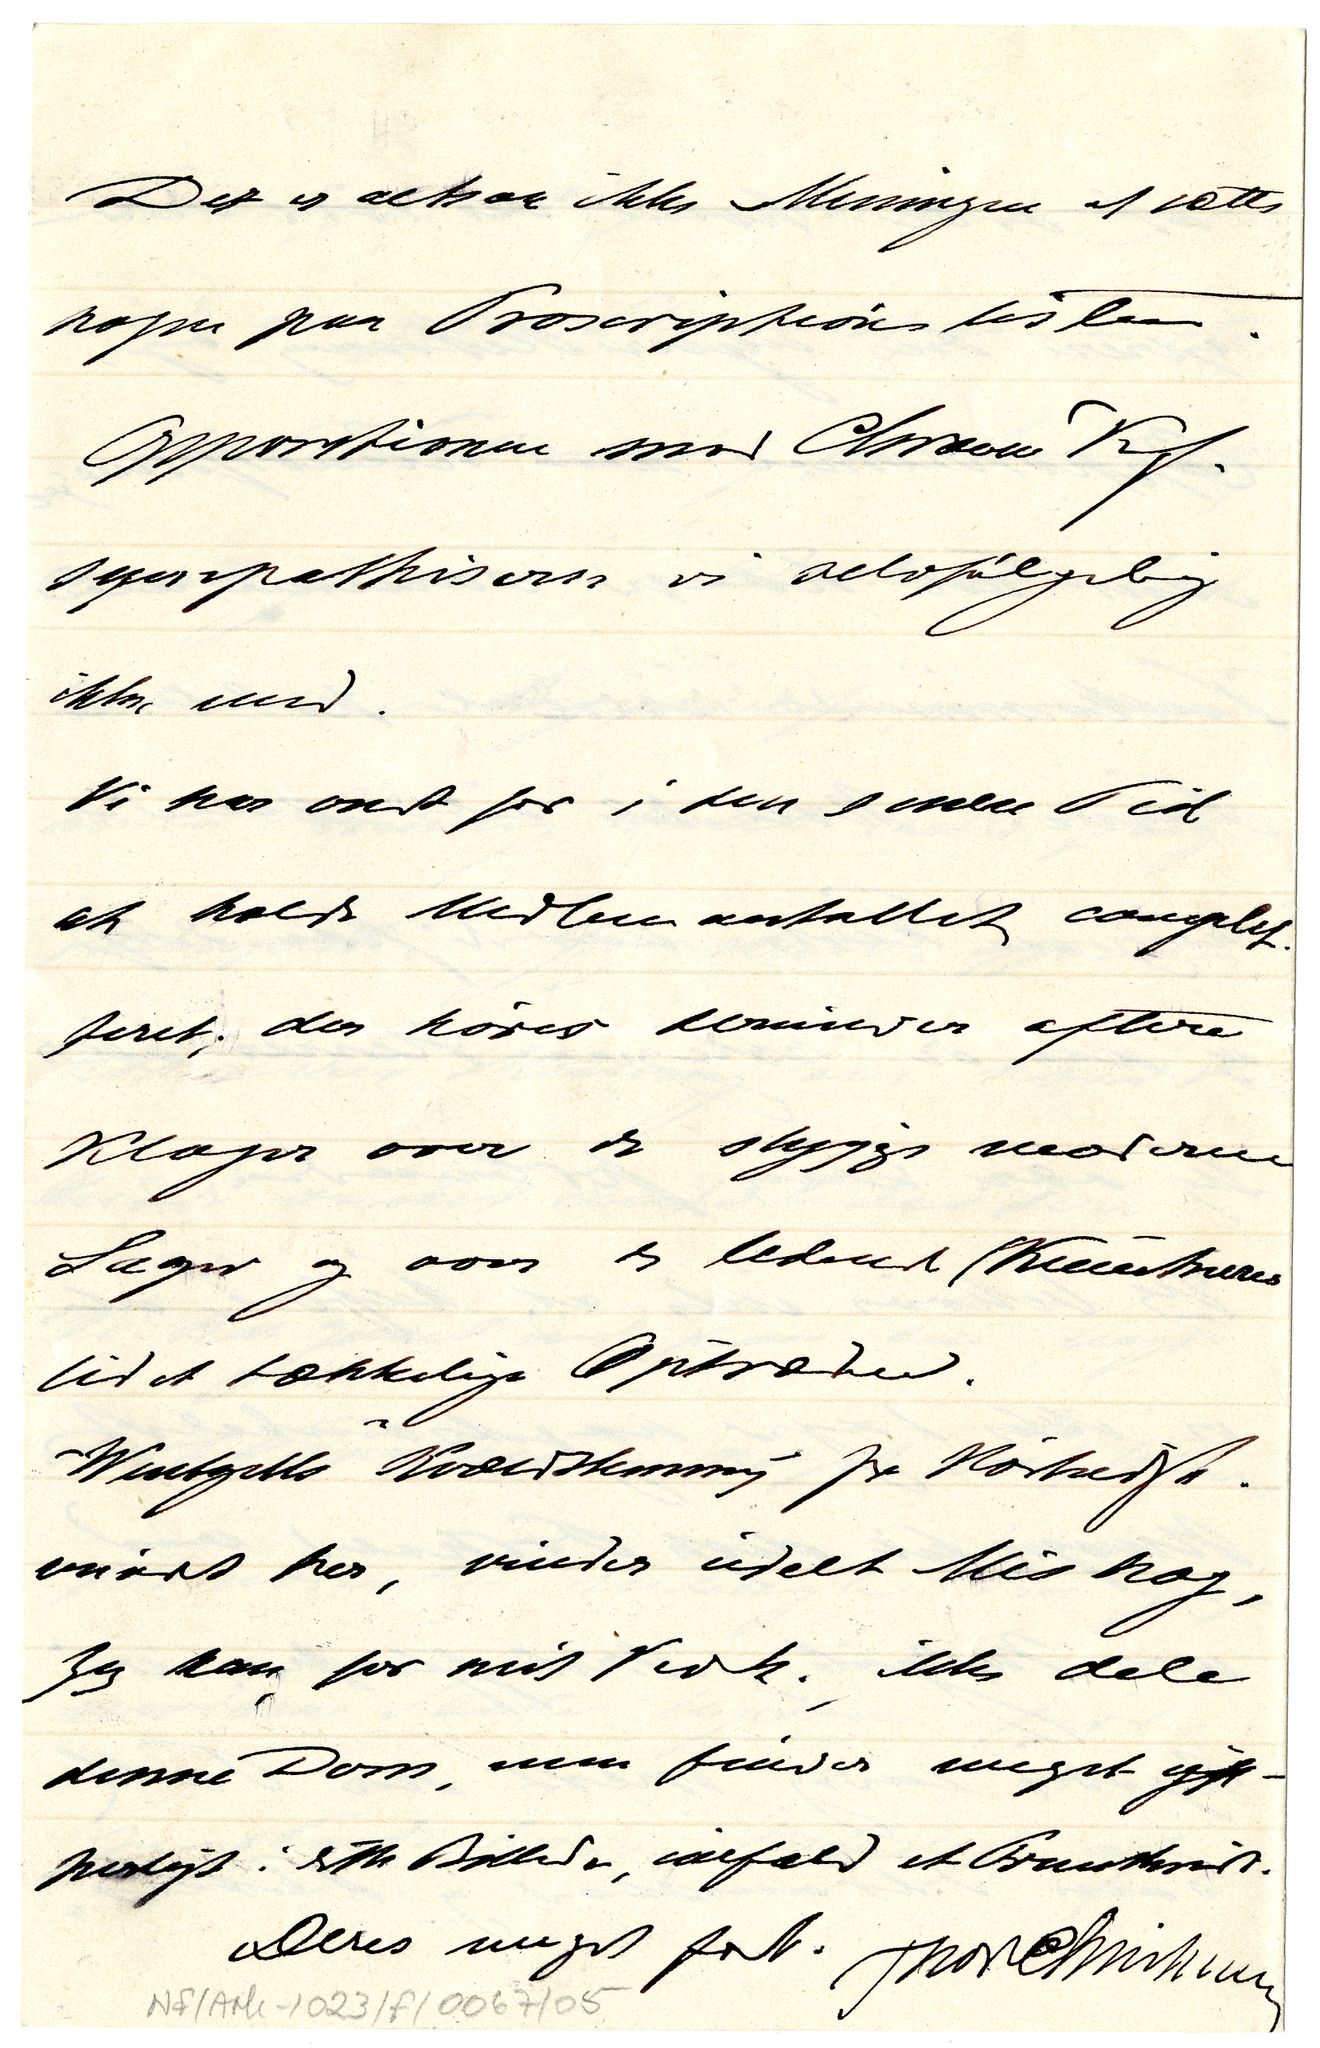 Det er altsaa ikke Meningen at sætte
nogen paa Proscriptionslisten.
Oppositionen mod Chra Kf.
sympathiserer vi selvfølgelig
ikke med.
Vi har ondt for i den senere Tid
at holde Medlemantallet complet-
teret; der høres desuden oftere
Klager over de stygge moderne
Sager og over de ledende Kunstneres
lidet tækkelige Optræden.
Wentzels Kvældstemning fra
her, vinder udelt Mishag,
Jeg kan for mit Vedk. ikke dele
denne Dom, men finder meget
i dette Billede, ialfald et Fremskridt.
Deres meget forb.
NF/Ark-1023/f/0067/05